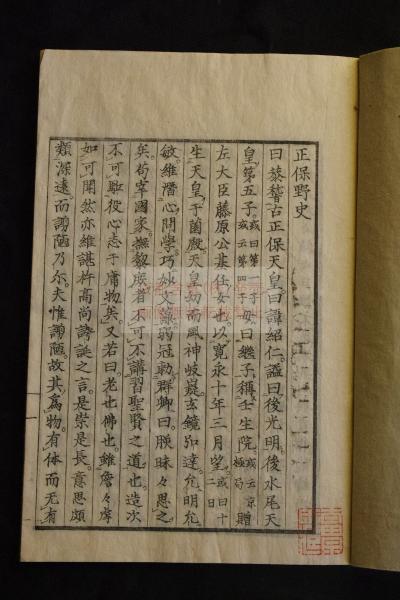 正保野史
曰蒸稽古正保天皇曰諱紹仁謚曰後光明後水尾天
皇第五子或曰第一子或云第四子母曰繼子稱壬生院或云京極局贈
左大臣藤原公基任女也以寛永十年三月望或曰十二日
生天皇于菌殿天皇幼而風神岐嶷玄鏡夘達允明允
敏維潛心問學巧妙文謙弱冠勅群卿曰朕昧々思之
矣苟宰國家撫黎庶者不可不講習聖賢之道也造次
不可敢役心志于庸物矣又若曰老也佛也雖詹々虖
如可聞然亦維諶杵高尚誇誕之言是崇是長意思頗
類深遠而謭陋乃尓夫惟謭陋故其為物有体而无有